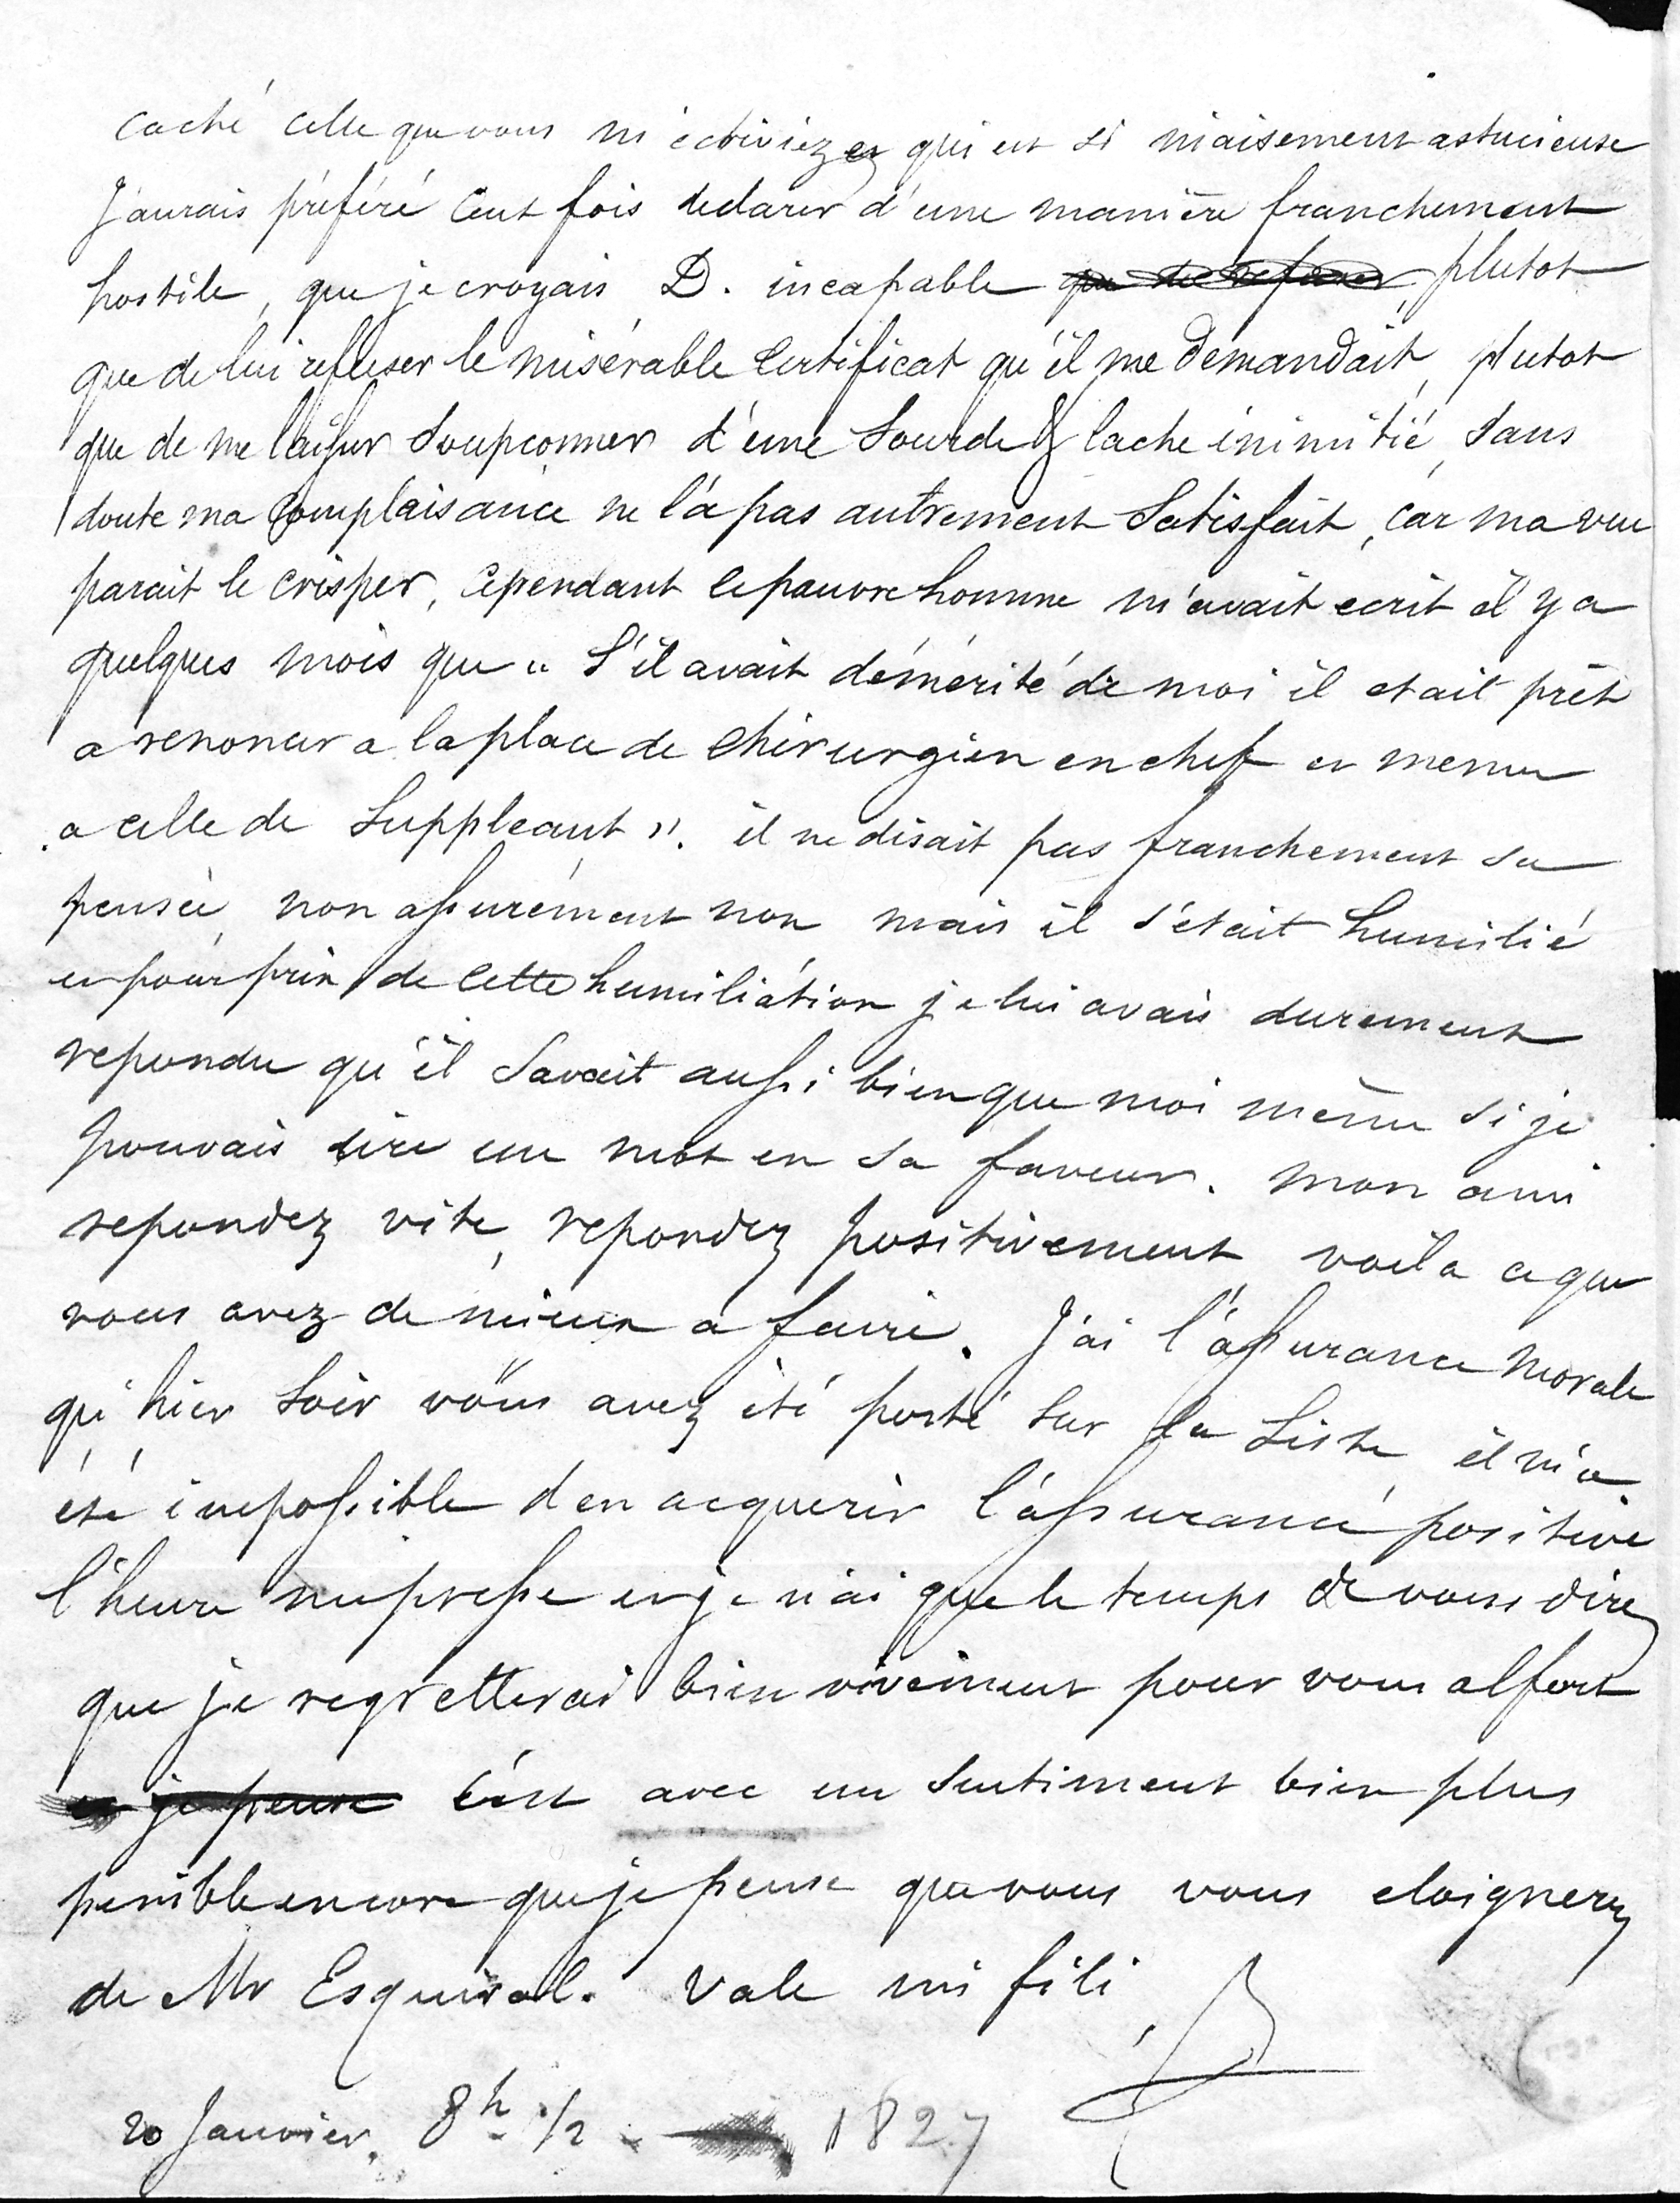 caché celle que vous m'ecriviez et qui est si niaisement astucieuse
J'aurais préféré cent fois declarer d'une manière franchement
hostile, que je croyais D. incapable plutot
que de lui refuser le misérable certificat qu'il me demandait, plutot
que de me laisser soupconner d'une sourde & lache inimitié, sans
doute ma complaisance ne l'a pas autrement satisfait, car ma vue
parait le crisper, cependant le pauvre homme m'avait ecrit il y a
quelques mois que " s'il avait démérité de moi il etait prêt
a renoncer a la place de chirurgien en chef et meme
a celle de suppleant ". il ne disait pas franchement sa
pensée, non assurément non mais il s'etait humilié
et pour prix de cette humiliation je lui avais durement
repondu qu'il savait aussi bien que moi même si je
pouvais dire un mot en sa faveur. mon ami
repondez vite, repondez positivement voila ce que
vous avez de mieux a faire. J'ai l'assurance morale
qu'hier soir vous avez été porté sur la liste, il m'a
été impossible d'en acquerir l'assurance positive
l'heure me presse et je n'ai que le temps de vous dire
que je regretterai bien vivement pour vous alfort
et je pense c'est avec un sentiment bien plus
penible encore que je pense que vous vous eloignerez
de Mr Esquirol. Vale mi fili
20 Janvier. 8h 1/2 1827